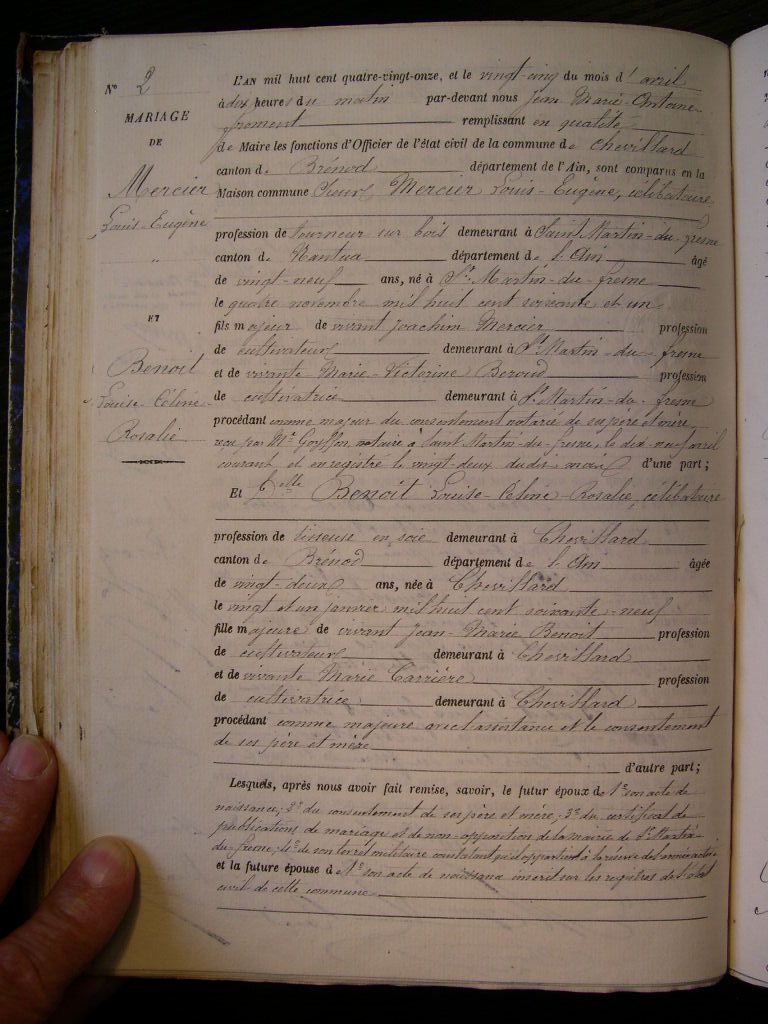 N° 2
MARIAGE
DE
Mercier
Louis-Eugène
"
ET
Benoit
Louise-Céline-
Rosalie
L'AN mil huit cent quatre-vingt-onze, et le vingt-cinq du mois d'avril
à dix heures du matin par-devant nous Jean Marie-Antoine
froment remplissant en qualité
de Maire les fonctions d'Officier de l'état civil de la commune de Chevillard
canton de Brénod département de l'Ain, sont comparus en la
Maison commune Sieur Mercier Louis-Eugène, célibataire
profession de tourneur sur bois demeurant à Saint Martin-du-fresne
canton de Nantua département de l'Ain âgé
de vingt-neuf ans, né à St Martin-du-fresne
le quatre novembre mil huit cent soixante et un
fils majeur de vivant Joachim Mercier profession
de cultivateur demeurant à St Martin-du-fresne
et de vivante Marie-Victorine Beroud profession
de cultivatrice demeurant à St Martin-du-fresne
procédant comme majeur du consentement notarié de ses père et mère,
reçu par Me Goyffon notaire à Saint Martin-du-fresne, le dix-neuf avril
courant, et enregistré le vingt-deux dudit mois d'une part;
Et Delle Benoit Louise-Céline-Rosalie, célibataire
profession de tisseuse en soie demeurant à Chevillard
canton de Brénod département de l'Ain âgée
de vingt-deux ans, née à Chevillard
le vingt et un janvier mil huit cent soixante-neuf
fille majeure de vivant Jean-Marie Benoit profession
de cultivateur demeurant à Chevillard
et de vivante Marie Carrière profession
de cultivatrice demeurant à Chevillard
procédant comme majeure avec l'assistance et le consentement
de ses père et mère
d'autre part;
Lesquels, après nous avoir fait remise, savoir, le futur époux de 1° son acte de
naissance; 2° du consentement de ses père et mère; 3° du certificat de
publications de mariage et de non-opposition de la mairie de St Martin-
du-fresne; 4° de son livret militaire constatant qu'il appartient à la réserve de l'armée active
et la future épouse de 1° son acte de naissance inscrit sur les registres de l'état
civil de cette commune